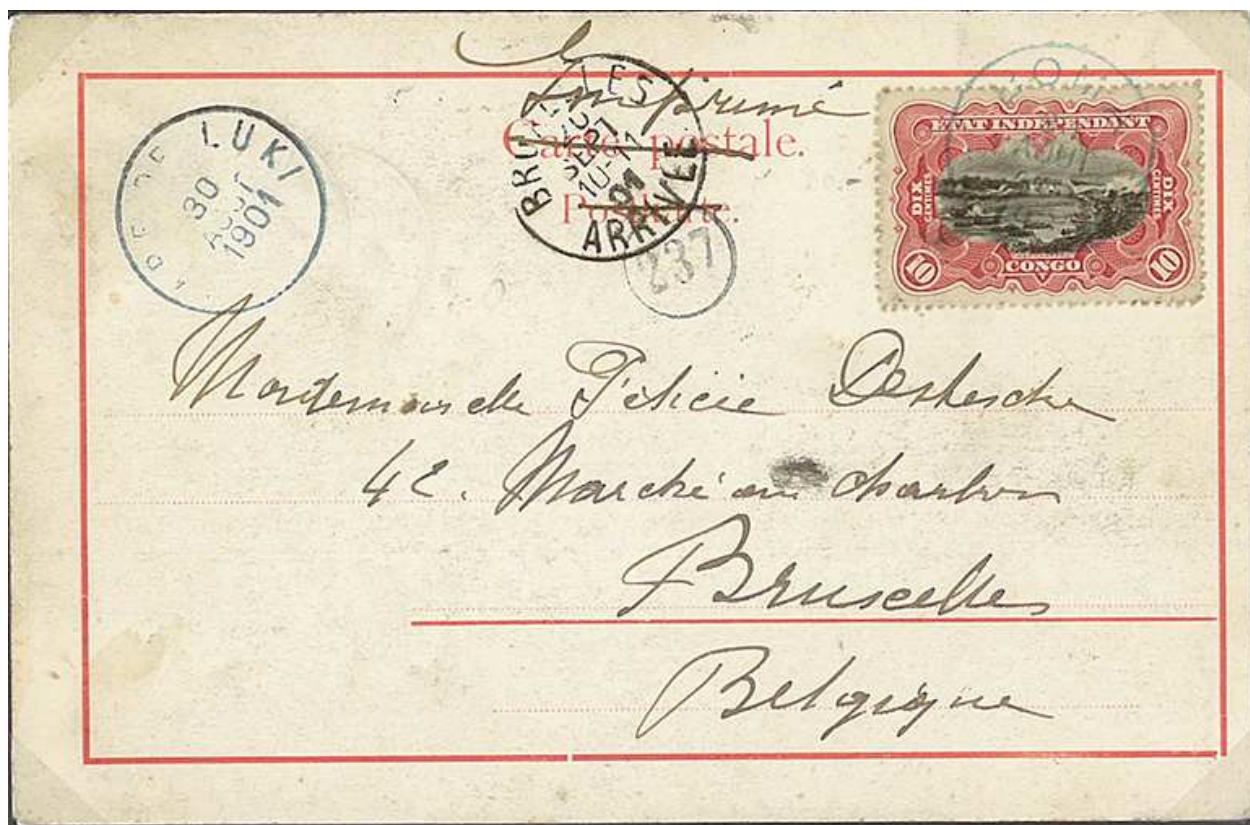 Imprimé
Carte postale.
Postkarte.
LUKI
30
AOUT
1901
BRUXELLES
SEPT
10-11
01
ARRIVEE
237
ETAT INDEPENDANT
DIX CENTIMES
DIX CENTIMES
10
CONGO
10
Mademoiselle Félicie
42. Marché au charbon
Bruxelles
Belgique